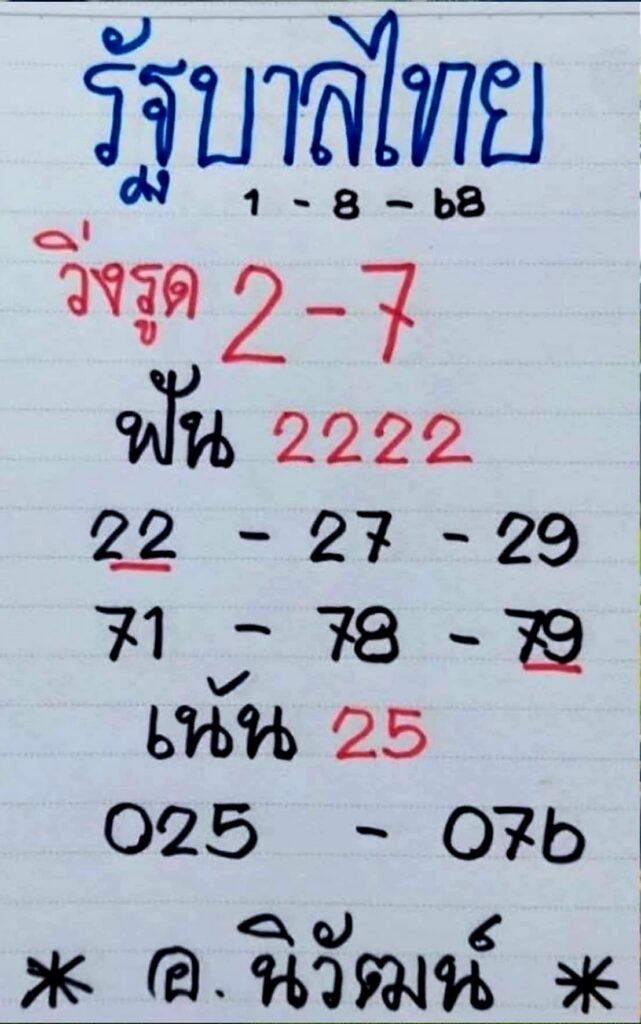 รัฐบาลไทย
1 - 8 - 68
วิ่งรูด 2-7
ฟัน 2222
22 - 27 - 29
71 - 78 - 79
เน้น 25
025 - 076
* อ. นิวัฒน์ *